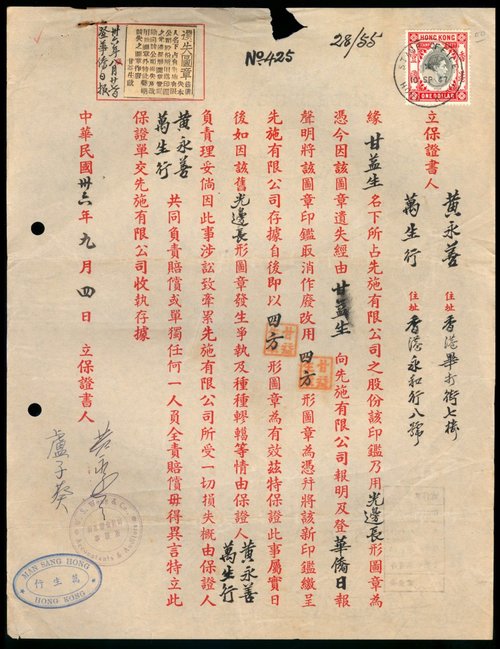 No 425
28/55
HONG KONG
ONE DOLLAR
10 SP 47
遺失圖章
卅六年八月廿七日
登華僑日報
立保證書人 黃永善 住址 香港畢打街七樓
萬生行 住址 香港永和行八號
緣 甘益生 名下所占先施有限公司之股份該印鑑乃用 光邊長 形圖章為
憑今因該圖章遺失經由 甘益生 向先施有限公司報明及登 華僑日 報
聲明將該圖章印鑑取消作廢改用 四方 形圖章為憑幷將該新印鑑繳呈
先施有限公司存據自後即以 四方 形圖章為有效茲特保證此事屬實日
後如因該舊 光邊長 形圖章發生爭執及種種轇轕等情由保證人 黃永善 萬生行
負責理妥倘因此事涉訟致牽累先施有限公司所受一切損失概由保證人
黃永善
萬生行 共同負責賠償或單獨任何一人負全責賠償毋得異言特立此
保證單交先施有限公司收執存據
中華民國卅六年九月四日 立保證書人
盧子葵
MAN SANG HONG
萬生行
HONG KONG